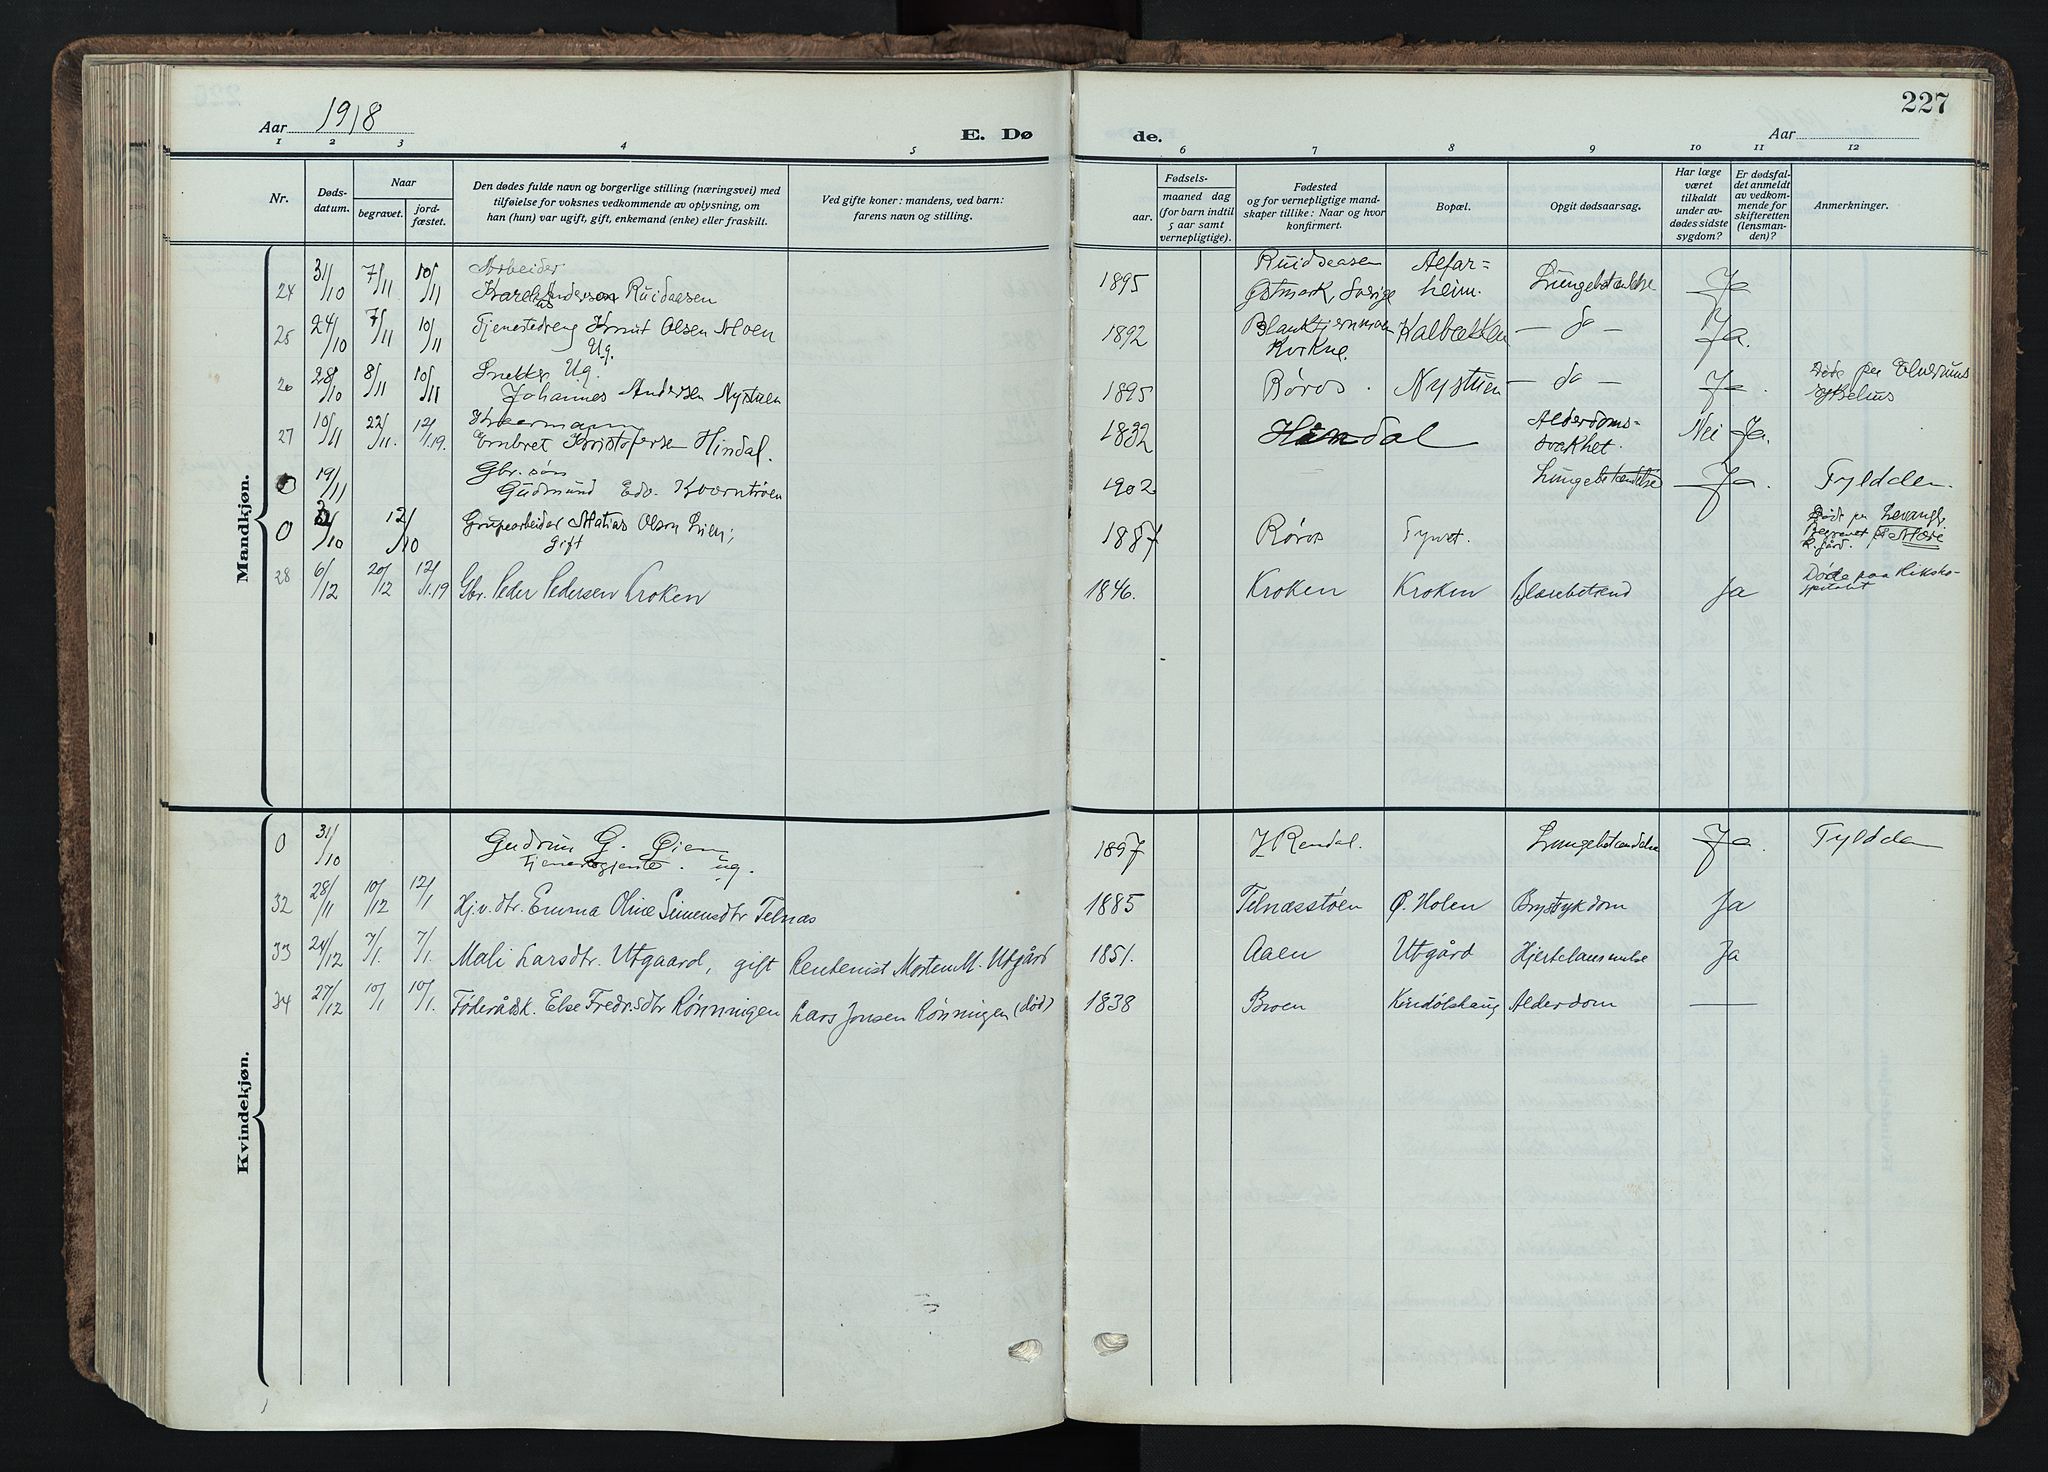 Aar 1918
E. Dø
de.
Aar
227
1 2 3 4 5 6 7 8 9 10 11 12
Nr.
Døds-
datum.
Naar
begravet.
jord-
fæstet.
Den dødes fulde navn og borgerlige stilling (næringsvei) med
tilføielse for voksnes vedkommende av oplysning, om
han (hun) var ugift, gift, enkemand (enke) eller fraskilt.
Ved gifte koner: mandens, ved barn:
farens navn og stilling.
Fødsels-
aar.
maaned dag
(for barn indtil
5 aar samt
vernepligtige).
Fødested
og for vernepligtige mand-
skaper tillike: Naar og hvor
konfirmert.
Bopæl.
Opgit dødsaarsag.
Har læge
været
tilkaldt
under av-
dødes sidste
sygdom?
Er dødsfal-
det anmeldt
av vedkom-
mende for
skifteretten
(lensman-
den)?
Anmerkninger.
Mandkjøn.
24 31/10 7/11 10/11 Arbeider
Anderson Ruidaesen
1895 Ruidseasen
Østmark, Sverige
Alfar=
heim.
Lungebetændelse Ja
25 24/10 7/11 10/11 Tjenestedreng Knut Olsen Moen
Ug.
1892
Kvikne.
Kalbækken — do — Ja.
26 28/10 8/11 10/11 Snekker Ug.
Johannes Andersen Nystuen
1895 Røros. Nystuen — do — Ja. Døde paa Elverums
sykehus
27 10/11 22/11. 12/1.19. Kaarmann
Embret Kristofersen Hindal.
1832 Hindal Alderdoms-
svakhet.
Nei Ja.
0 19/11 Gbr. søn
Gudmund Edv. Kværntrøen
1902 Lungebetændelse Ja. Tylddalen.
0 /10 12/10 Grupearbeider Matias Olsen Lien;
gift
1887 Røros Tyvet. Dødt paa Levanger
Begravet på Mære
k.gård.
28 6/12 20/12 12/1.19 Gbr. Peder Pedersen Kroken
1846. Kroken Kroken Blærebetænd Ja Døde paa Riksho-
spitalet
Kvindekjøn.
0 31/10 Gudrun G. Øien
Tjenestegjente. ug.
1897 Y. Rendal. Lungebetændelse Ja. Tylddalen
32 28/11 10/12 12/1 Hj.v. dtr. Emma Oline Simensdtr Telnæs
1885 Telnæsstøen Ø. Holen Brystsykdom Ja
33 24/12 7/1. 7/1. Mali Larsdtr. Utgaard, gift Rentenist Morten M. Utgård
1851. Aaen Utgård Hjertelammelse Ja
34 27/12 10/1 10/1. Føderådsk. Else Fredr.sdtr Rønningen Lars Jonsen Rønningen (død)
1838 Broen Kindølshaug Alderdom —